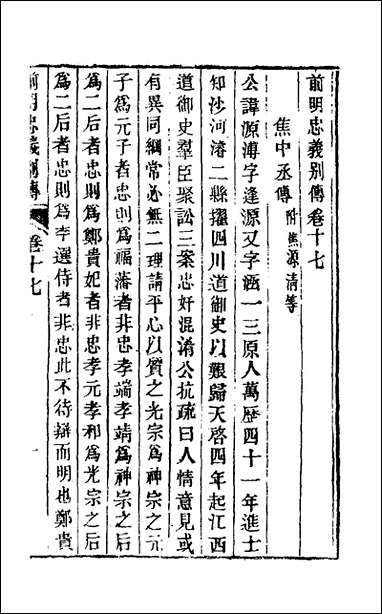 前明忠義別傳卷十七
焦中丞傳附焦源清等
公諱源溥字逢源又字涵一三原人萬歷四十一年進士
知沙河濬二縣擢四川道御史以艱歸天啓四年起江西
道御史羣臣聚訟三案忠奸混淆公抗疏曰人情意見或
有異同綱常必無二理請平心以質之光宗爲神宗之元
子爲元子者忠則爲福藩者非忠孝端孝靖爲神宗之后
爲二后者忠則爲鄭貴妃者非忠孝元孝和爲光宗之后
爲二后者忠則爲李選侍者非忠此不待辯而明也鄭貴
前明忠義別傳卷十七